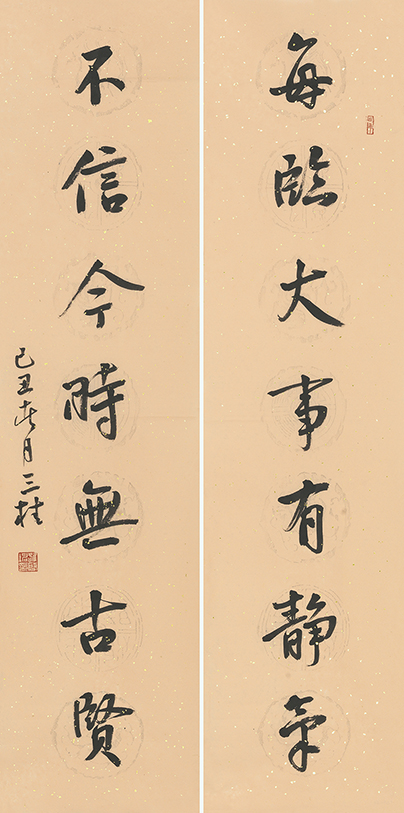 每臨大事有静氣
不信今時無古賢
己丑春月三桂